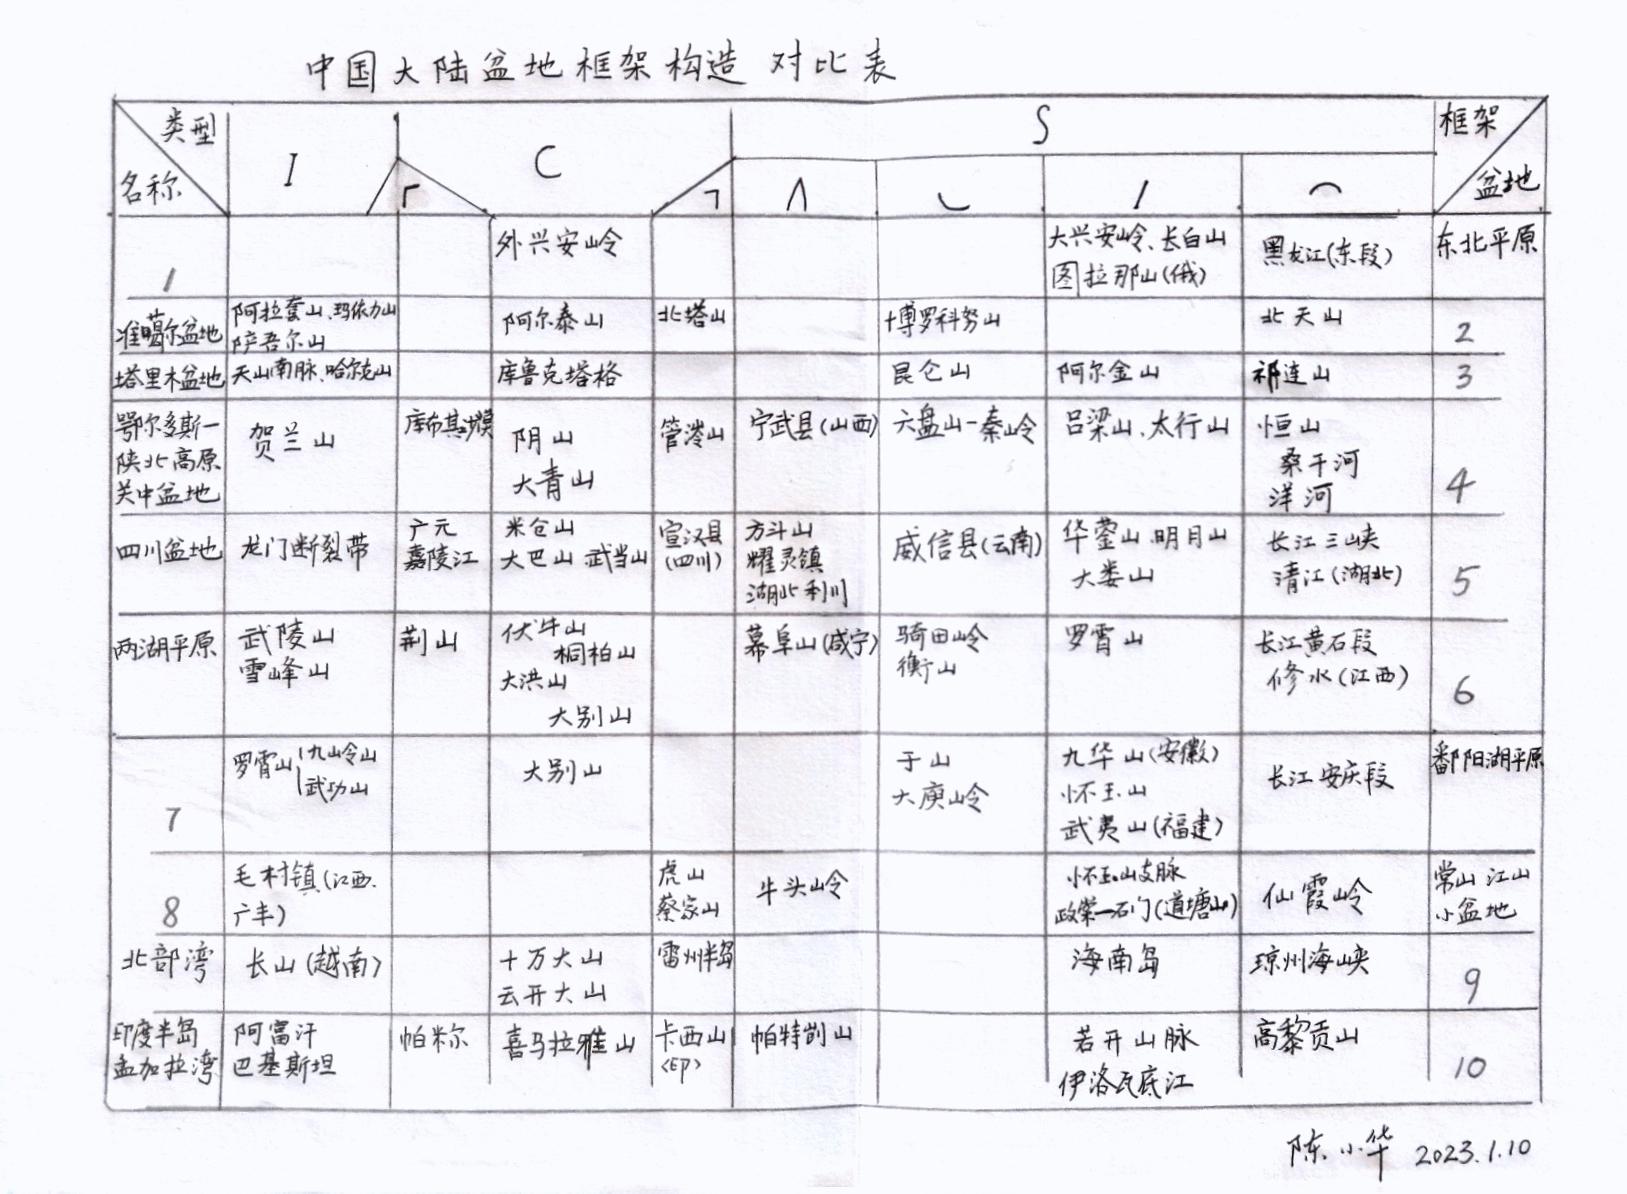 中国大陆盆地框架构造 对比表
类型
名称
I
C
S
框架
盆地
┌
┐
∧
◟
/
⌒
1
外兴安岭
大兴安岭、长白山
图拉那山(俄)
黑龙江(东段)
东北平原
准噶尔盆地
阿拉套山、玛依力山
萨吾尔山
阿尔泰山
北塔山
博罗科努山
北天山
2
塔里木盆地
天山南脉、哈尔克山
库鲁克塔格
昆仑山
阿尔金山
祁连山
3
鄂尔多斯一
陕北高原
关中盆地
贺兰山
库布其沙漠
阴山
大青山
管涔山
宁武县(山西)
六盘山-秦岭
吕梁山、太行山
恒山
桑干河
洋河
4
四川盆地
龙门断裂带
广元
嘉陵江
米仓山
大巴山 武当山
宣汉县
(四川)
方斗山
耀灵镇
湖北利川
威信县(云南)
华蓥山 明月山
大娄山
长江三峡
清江(湖北)
5
两湖平原
武陵山
雪峰山
荆山
伏牛山
桐柏山
大洪山
大别山
幕阜山(咸宁)
骑田岭
衡山
罗霄山
长江黄石段
修水(江西)
6
7
罗霄山
九岭山
武功山
大别山
于山
大庾岭
九华山(安徽)
怀玉山
武夷山(福建)
长江安庆段
鄱阳湖平原
8
毛村镇(江西.
广丰)
虎山
蔡家山
牛头岭
怀玉山支脉
政棠一石门(道塘山)
仙霞岭
常山 江山
小盆地
北部湾
长山(越南)
十万大山
云开大山
雷州半岛
海南岛
琼州海峡
9
印度半岛
孟加拉湾
阿富汗
巴基斯坦
帕米尔
喜马拉雅山
卡西山
(印)
帕特凯山
若开山脉
伊洛瓦底江
高黎贡山
10
陈小华 2023.1.10